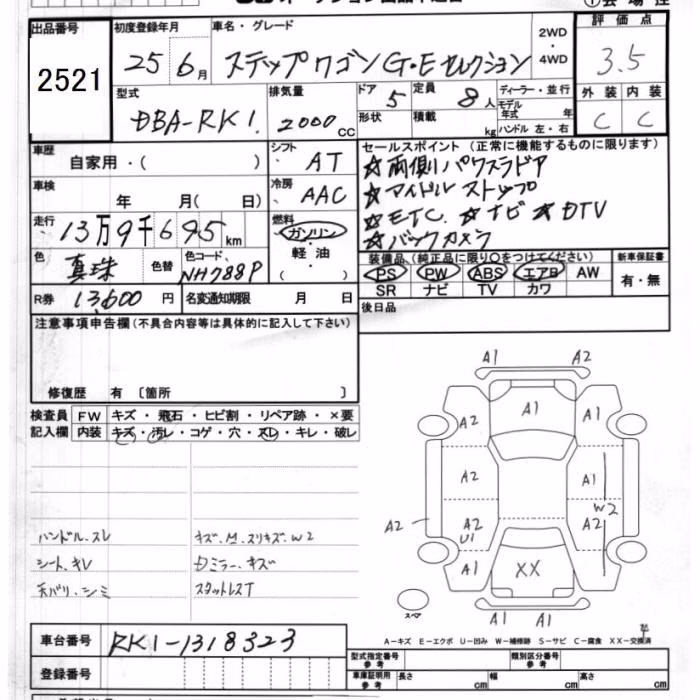 出品番号
2521
初度登録年月
25 6月
車名・グレード
ステップワゴン G・Eセレクション
2WD
・
4WD
評価点
3.5
型式
DBA-RK1
排気量
2000 cc
ドア
5
定員
8人
形状
積載
kg
ディーラー・並行
モデル年式 年
ハンドル 左・右
外装 内装
C C
車歴
自家用・( )
シフト
AT
車検
年 月( 日)
冷房
AAC
走行
13万9千695km
燃料
ガソリン
・
軽油
色
真珠
色替
色コード
NH788P
R券
13,600円
名変通知期限 月 日
セールスポイント(正常に機能するものに限ります)
☆両側パワスラドア
☆アイドルストップ
☆ETC ☆ナビ ☆DTV
☆バックカメラ
装備品(純正品に限り○をつけてください)
PS PW ABS エアB AW
SR ナビ TV カワ
新車保証書
有・無
後日品
注意事項申告欄(不具合内容等は具体的に記入して下さい)
修復歴 有〔箇所 〕
検査員記入欄
FW キズ・飛石・ヒビ割・リペア跡・×要
内装 キズ・汚レ・コゲ・穴・スレ・キレ・破レ
ハンドル.スレ
シート.キレ
天バリ.シミ
キズ.M.スリキズ.W2
Dミラー.キズ
スタットレスT
A1 A2
A2 A1 A1
A2 A1
W2
A2 A2 A2
U1
A1 XX
A1 A2
スペア
A-キズ E-エクボ U-凹み W-補修跡 S-サビ C-腐食 XX-交換済
車台番号
RK1-1318323
登録番号
型式指定番号
参考
類別区分番号
参考
車庫証明用
参考
長さ cm
幅 cm
高さ cm